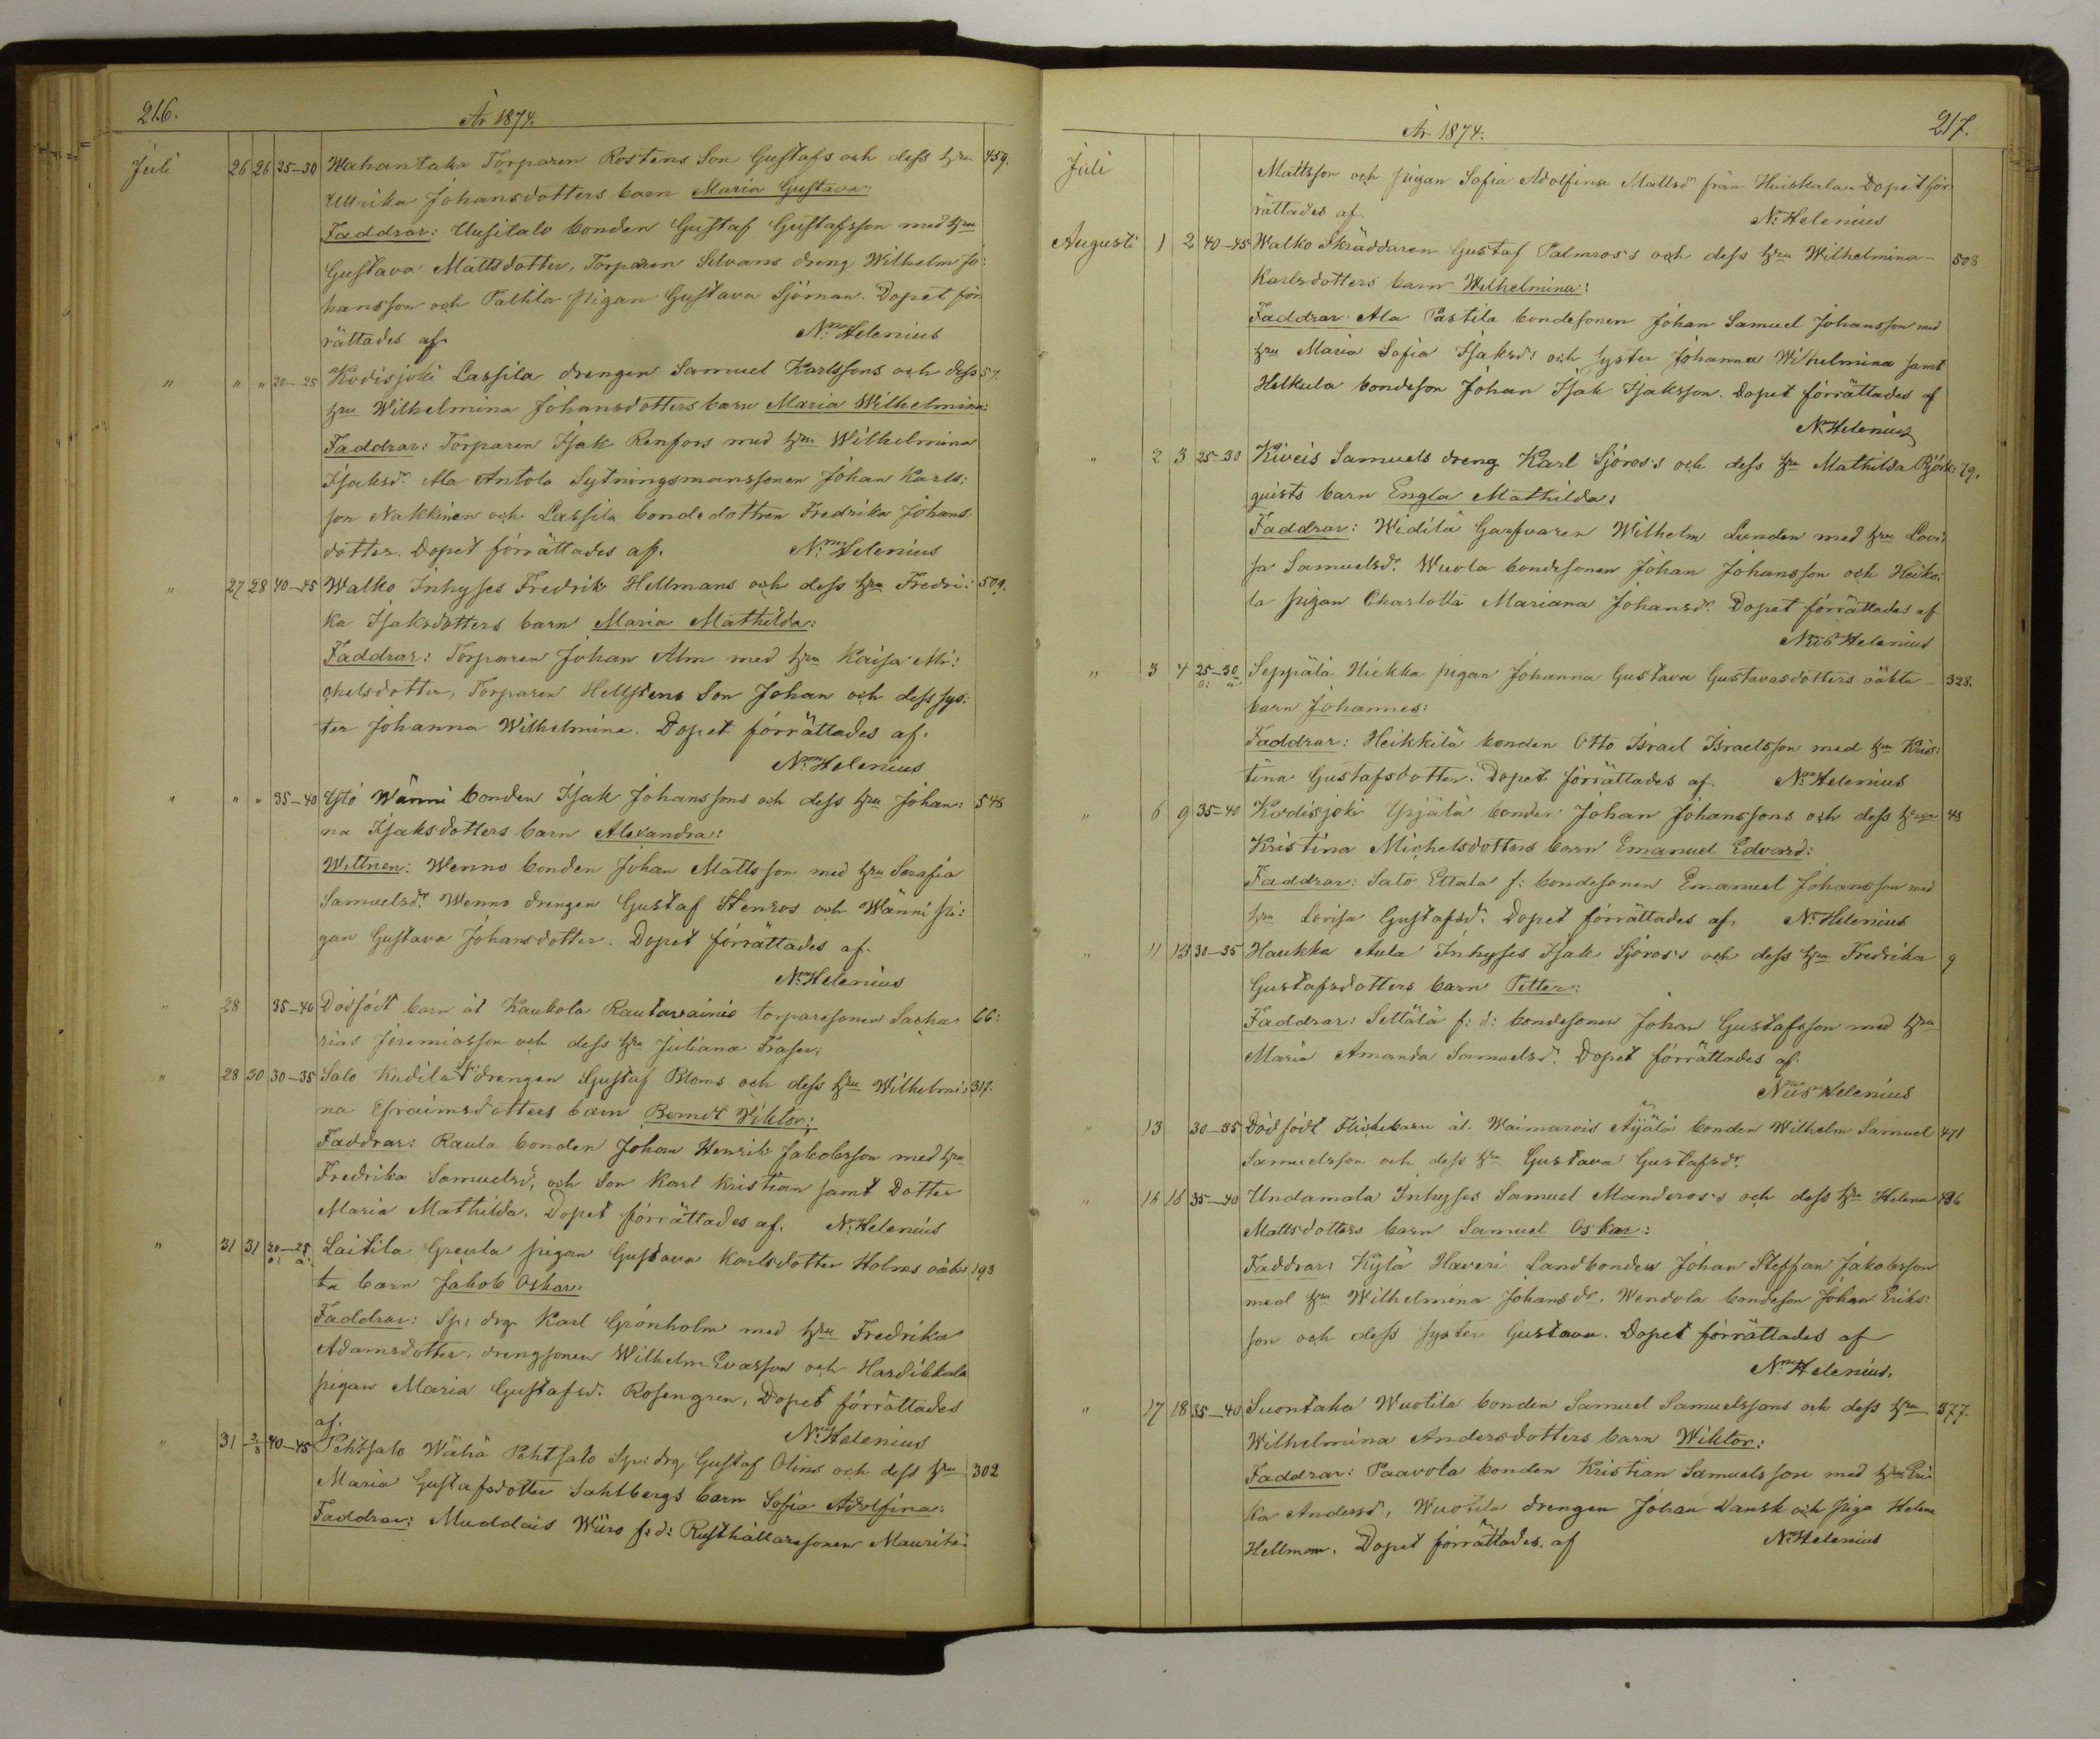 216.
År 1874.
Juli 26 26 25-30 Wahantaka Torparen Rostens Son Gustafs och dess hru 459.
Ullrika Johansdotters barn Maria Gustava:
Faddrar: Uusitalo bonden Gustaf Gustafsson med hru
Gustava Mattsdotter, Torparen Selvans dreng Wilhelm Jo:
hansson och Paltila pigan Gustava Sjöman. Dopet för
rättades af N:us Helenius
" " " 20-25 Kodisjoki Lassila drengen Samuel Karlssons och dess 57.
hru Wilhelmina Johansdotters barn Maria Wilhelmina:
Faddrar: Torparen Isak Renfors med hru Wilhelmina
Isaksdr. Ala Antola Sytningsmanssonen Johan Karls:
son Nakkinen och Lassila bondedottren Fredrika Johans:
dotter. Dopet förrättades af. N:us Helenius
" 27 28 40-45 Walko Inhyses Fredrik Hellmans och dess hru Fredri: 509.
ka Isaksdotters barn Maria Mathilda:
Faddrar: Torparen Johan Alm med hru Kaisa Mi:
chelsdotter, Torparen Hellstens Son Johan och dess sys:
ter Johanna Wilhelmina. Dopet förrättades af.
N:us Helenius
" " " 35-40 Ytö Wänni bonden Isak Johanssons och dess hru Johan: 548
na Isaksdotters barn Alexandra:
Wittnen: Wenno bonden Johan Mattsson med hru Serafia
Samuelsdr. Wenno drengen Gustaf Stenros och Wänni pi:
gan Gustava Johansdotter. Dopet förrättades af.
N:us Helenius
" 28 35-40 Dödfödt barn åt Kaukola Rautavainio torparesonen Sacha: 66:
rias Jeremiasson och dess hru Juliana Fraser;
" 28 30 30-35 Salo Kudila Sp: drengen Gustaf Bloms och dess hru Wilhelmi: 317.
na Efraimsdotters barn Berndt Viktor:
Faddrar: Raula bonden Johan Henrik Jakobsson med hru
Fredrika Samuelsdr, och Son Karl Kristian samt Dotter
Maria Mathilda. Dopet förrättades af. N:us Helenius
" 31 31 20-25 Laitila Greula pigan Gustava Karlsdotter Holms oäk: 193
o: ä:
ta barn Jakob Oskar:
Faddrar: Sp: drg Karl Grönholm med hru Fredrika
Adamsdotter, drengsonen Wilhelm Evasson och Hardikkala
pigan Maria Gustafsd. Rosengren, Dopet förrättades
af. N:us Helenius
" 31 2/8 40-45 Pehtsalo Wähä Pehtsalo Sp: drg Gustaf Olins och dess hru 302
Maria Gustafsdotter Sahlbergs barn Sofia Adolfina:
Faddrar: Muddais Wiiro f:d: Rusthållaresonen Maurits
År 1874.
217.
Juli Mattsson och pigan Sofia Adolfina Mattsdr från Huiskala. Dopet för
rättades af. N:us Helenius
Augusti 1 2 40-45 Walko Skräddaren Gustaf Palmros's och dess hru Wilhelmina 508
Karlsdotters barn Wilhelmina:
Faddrar: Ala Pastila bondesonen Johan Samuel Johansson med
hru Maria Sofia Isaksdr och syster Johanna Wilhelmina samt
Helkula bondeson Johan Isak Isaksson. Dopet förrättades af
N:us Helenius
" 2 3 25-30 Kiveis Samuels dreng Karl Sjöros's och dess hru Mathilda Björk: 79.
quists barn Engla Mathilda:
Faddrar: Widilä Garfvaren Wilhelm Lunden med hru Lovi:
sa Samuelsdr. Wuola bondesonen Johan Johansson och Heiko:
la pigan Charlotta Mariana Johansdr. Dopet förrättades af
N:us Helenius
" 3 4 25-30 Seppälä Hiekka pigan Johanna Gustava Gustavasdotters oäkta 328.
o: ä:
barn Johannes:
Faddrar: Heikkilä bonden Otto Israel Israelsson med hru Kris:
tina Gustafsdotter. Dopet förrättades af N:us Helenius
" 6 9 35-40 Kodisjoki Yrjälä bonden Johan Johanssons och dess hru 48
Kristina Michelsdotters barn Emanuel Edvard:
Faddrar: Salo Ettala f: bondesonen Emanuel Johansson med
hru Lovisa Gustafsdr. Dopet förrättades af. N:us Helenius
" 11 13 30-35 Haukka Aula Inhyses Isak Sjöros's och dess hru Fredrika 9
Gustafsdotters barn Petter:
Faddrar: Settälä f: d: bondesonen Johan Gustafsson med hru
Maria Amanda Samuelsdr. Dopet förrättades af.
N:us Helenius
" 13 30-35 Dödfödt Flickebarn åt Waimarois Äijälä bonden Wilhelm Samuel 471
Samuelsson och dess hru Gustava Gustafsdr.
" 16 16 35-40 Undamala Inhyses Samuel Manderos's och dess hru Helena 496
Mattsdotters barn Samuel Oskar:
Faddrar: Kylä Haveri Landbonden Johan Steffan Jakobsson
med hru Wilhelmina Johansdr. Wendola bondeson Johan Eriks:
son och dess syster Gustava. Dopet förrättades af
N:us Helenius.
" 17 18 35-40 Suontaka Wuotila bonden Samuel Samuelssons och dess hru 377.
Wilhelmina Andersdotters barn Wiktor:
Faddrar: Paavola bonden Kristian Samuelsson med hru Eri:
ka Andersd, Wuotila drengen Johan Dansk och piga Helena
Hellman. Dopet förrättades af N:us Helenius